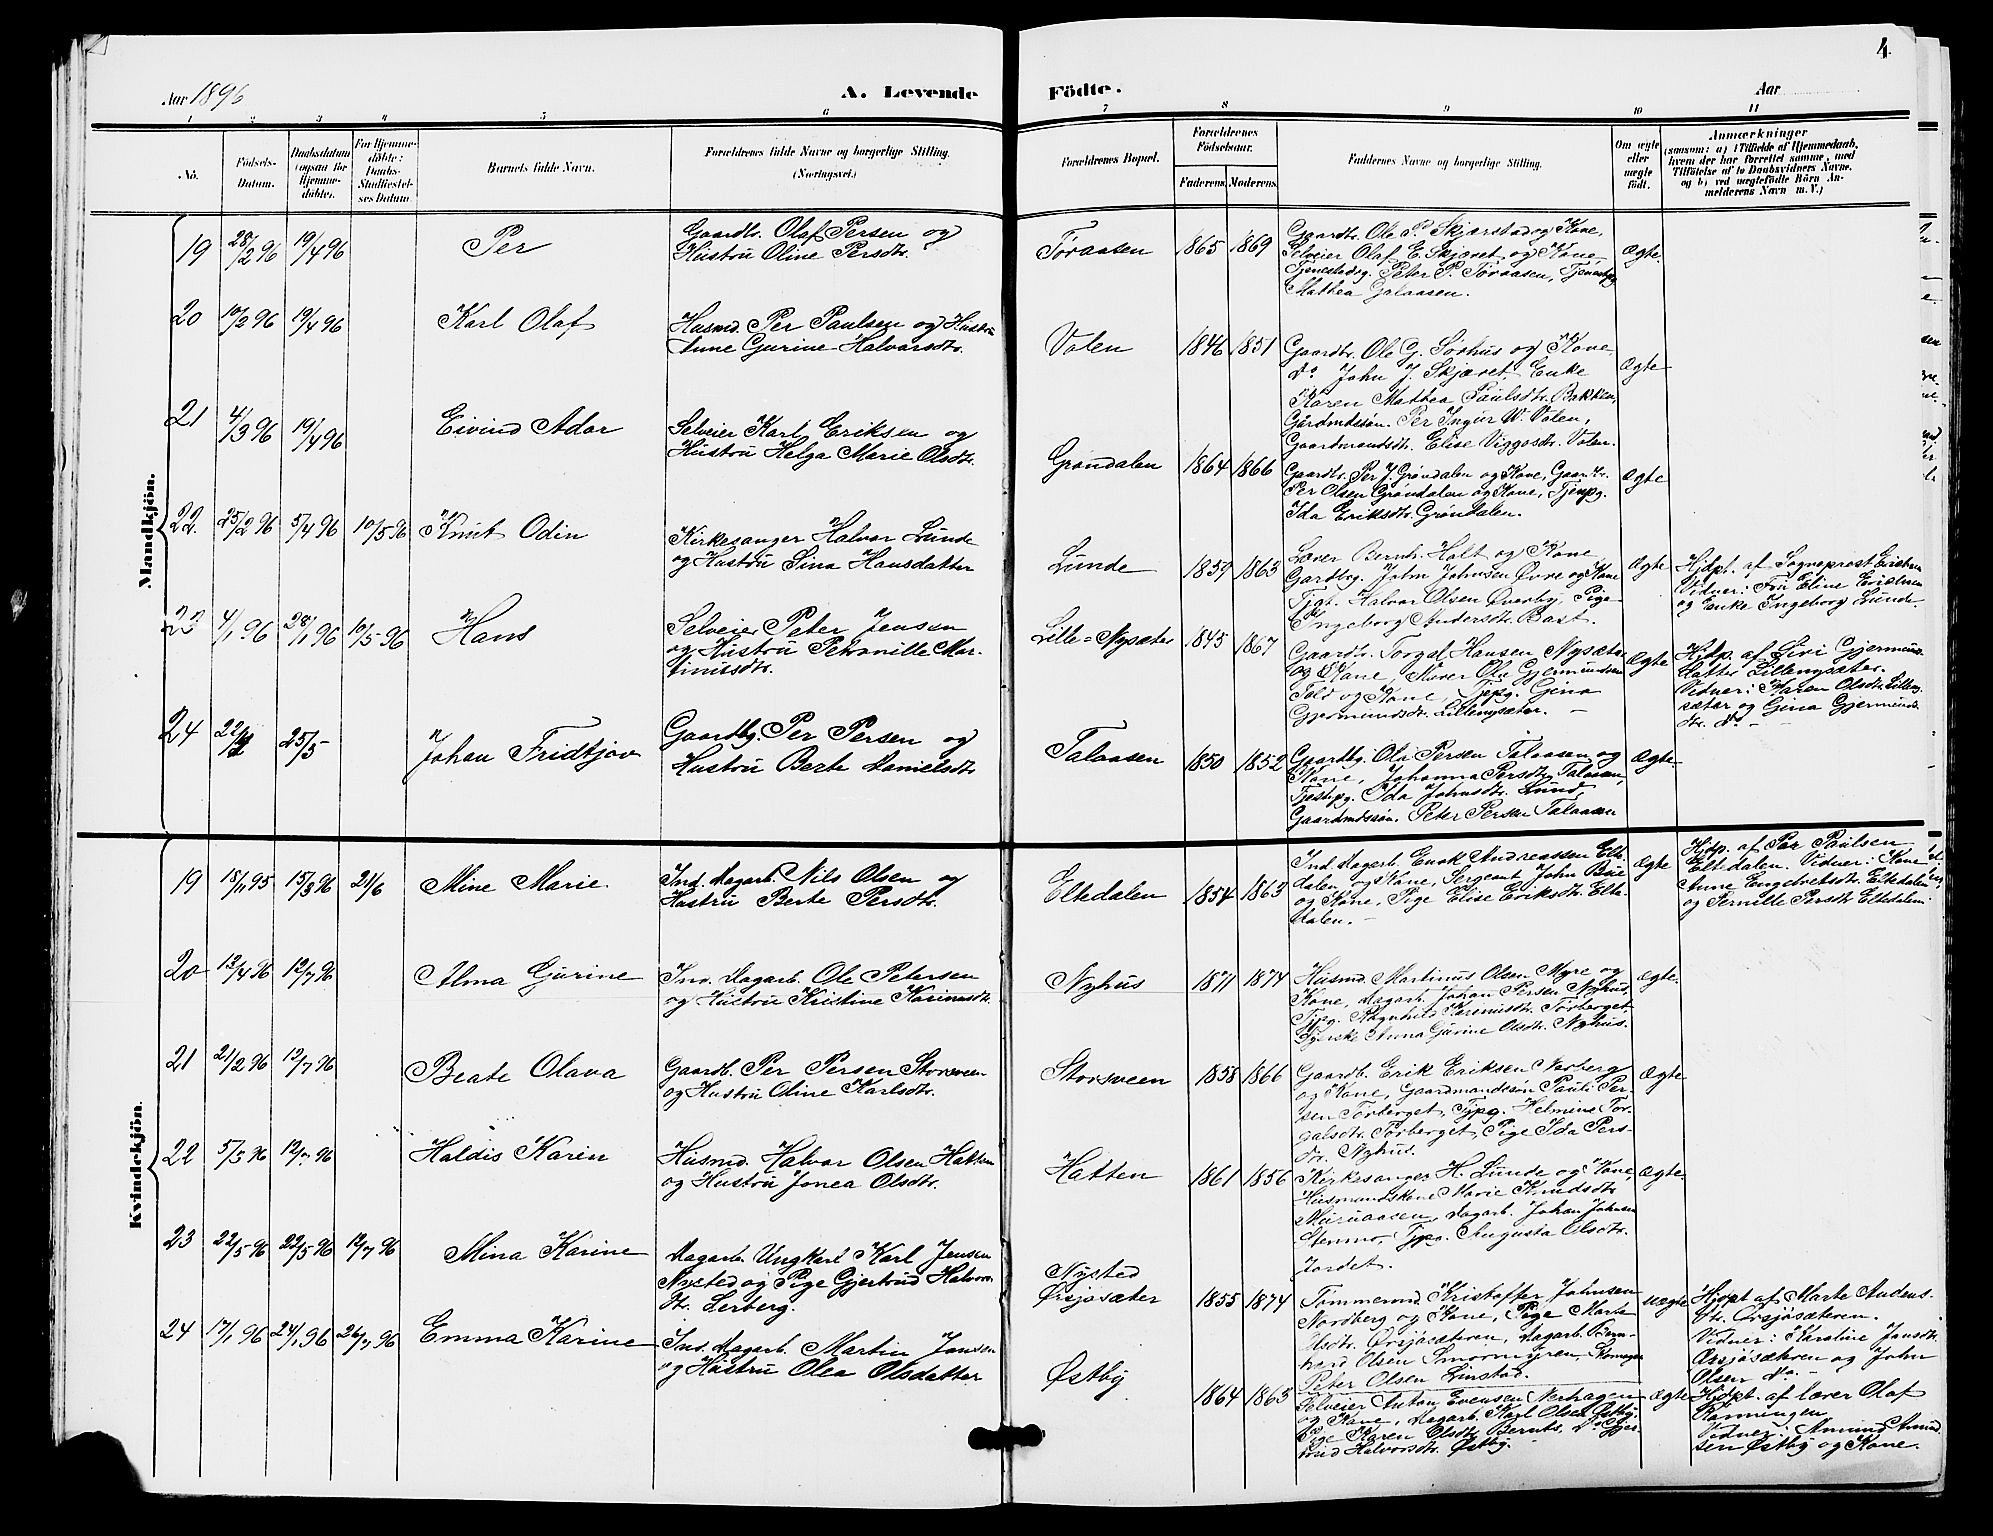 4
Aar 1896
A. Levende
Födte.
Aar
1 2 3 4 5 6 7 8 9 10 11
No.
Födsels-
Datum.
Daabsdatum
(ogsaa for
Hjemme-
döbte).
For Hjemme-
döbte:
Daabs-
Stadfæstel-
ses Datum
Barnets fulde Navn.
Forældrenes fulde Navne og borgerlige Stilling.
(Næringsvei.)
Forældrenes Bopæl.
Forældrenes
Födselsaar.
Faderens. Moderens.
Faddernes Navne og borgerlige Stilling.
Om ægte
eller
uægte
födt.
Anmærkninger
(saasom: a) i Tilfælde af Hjemmedaab,
hvem der har forrettet samme, med
Tilföielse af to Daabsvidners Navne,
og b) ved uægtefödte Börn An-
melderens Navn m. V.)
Mandkjön.
19 28/2 96 19/4 96 Per
Gaardbr. Olaf Persen og
Hustru Oline Persdtr.
Töraasen 1865 1869
Gaardbr. Ole P. Skjærstad og Kone,
Selveier Olaf E. Skjæret og Kone,
Tjenestedrg. Peter P. Töraasen, Tjenestpg
Mathea Galaasen.
Ægte.
20 10/2 96 19/4 96 Karl Olaf
Husmd. Per Paulsen og Hustru
Anne Gurine Halvarsdtr.
Volen 1846 1851
Gaardbr. Ole G. Sörhus og Kone,
do John J. Skjæret, Enke
Karen Mathea Paulsdtr. Bakken,
Gårdmdssön. Per Ingur W. Volen,
Gaardmandsdtr. Elise Viggosdtr. Volen.
Ægte
21 4/3 96 19/4 96 Eivind Ador
Selveier Karl Eriksen og
Hustru Helga Marie Olsdtr.
Gröndalen 1864 1866
Gaardbr. Per J. Gröndalen og Kone, Gaardbr.
Per Olsen Gröndalen og Kone, Tjenpg.
Ida Eriksdtr. Gröndalen.
Ægte
22. 25/2 96 5/4 96 10/5 96 Knut Odin
Kirkesanger Halvor Lunde
og Hustru Sina Hansdatter
Lunde 1859 1863
Lærer Bernh. Holt og Kone,
Gardbrg. John Johnsen Övre og Kone
Tjgt. Halvor Olsen Överby, Pige
Ingeborg Andersdtr. Bast.
Ægte
Hjdpt. af Sogneprest Erichsen
Vidner: Fru Eline Erichsen
og Enke Ingeborg Lunde.
23 4/1 96 28/1 96 10/5 96 Hans
Selveier Peter Jensen
og Hustru Petronille Mar-
tinusdtr.
Lille-Nysæter 1845 1867
Gaardbr. Torgal Hansen Nysæter
og Kone, Murer Ole Gjermundsen
Told og Kone, Tjpg. Gina
Gjermundsdtr. Lillenysæter. -
Ægte
Hjdp. af Siri Gjermunds-
datter Lillenysæter.
Vidner: Karen Olsdtr. Lilleny-
sæter og Gina Gjermunds-
dtr. do -
24 25/5 - Johan Fridtjov
Gaardbg. Per Persen og
Hustru Berte Danielsdtr
Talaasen 1850 1852
Gaardbg. Ole Persen Talaasen og
Kone, Johanna Persdtr. Talaasen,
Tjestepg. Ida Johnsdtr. Lund,
Gaardmdssön. Peter Persen Talaasen
Ægte
Kvindekjön.
19 18/11 95 15/3 96 21/6 Mine Marie.
Ind. Dagarb. Nils Olsen og
Hustru Berte Persdtr.
Eltedalen 1854 1863
Ind. Dagarb. Enok Andreassen Elte-
dalen og Kone, Sergeant John Bue
og Kone, Pige Elise Eriksdtr. Elte-
dalen. -
Ægte
Hjdp. af Per Paulsen
Eltedalen. Vidner: Kone
Anne Engebretsdtr. Eltedalen
og Pernille Persdtr Eltedalen.
20 12/4 96 12/7 96 Alma Gurine
Ind. Dagarb. Ole Petersen
og Hustru Kristine Karinusdtr.
Nyhus 1871 1874
Husmd. Martinus Olsen Myre og
Kone, Dagarb. Johan Persen Nyhus,
Tjpg. Ragnhild Karenusdtr. Törberget,
Syerske Anna Gurine Olsdtr. Nyhus.
Ægte.
21 21/2 96 12/7 96 Beate Olava
Gaardb. Per Persen Storsveen
og Hustru Oline Karlsdtr.
Storsveen 1858 1866
Gaardb. Erik Eriksen Norberg
og Kone, Gaardmandssön Paul Per-
sen Törberget, Tjpg. Helmine Tor-
galsdtr. Törberget, Pige Ida Pers-
dtr. Nyhus.
Ægte
22 5/5 96 12/7 96 Haldis Karin
Husmd. Halvor Olsen Hatten
og Hustru Jonea Olsdtr.
Hatten 1861 1856
Kirkesanger H. Lunde og Kone,
Husmandskone Marie Knudsdtr
Muruaasen, Dagarb. Johan Johnsen
Stenmo, Tjpg. Augusta Olsdtr.
Jordet.
Ægte.
23 22/5 96 22/5 96 12/7 96 Mina Karine
Dagarb. Ungkarl Karl Jensen
Nysted og Pige Gjertrud Halvors-
dtr. Lerberg.
Nysted
Örsjösæter 1855 1874
Tömmermd. Kristoffer Johnsen
Nordberg og Kone, Pige Marte
Olsdtr. Örsjösætren, Dagarb. Bern-
hard Olsen Smormyren, Skomager
Peter Olsen Linstad.
uægte
Hjdpt af Marte Andens-
dtr. Örsjösætren.
Vidner: Karoline Jansdtr.
Örsjösætren og John
Olsen do. -
24 17/1 96 24/1 96 26/7 96 Emma Karine
Ind. Dagarb. Martin Jonsen
og Hustru Olea Olsdatter
Östby 1864 1863
Selveier Anton Evensen Nerhagen
og Kone, Dagarb. Karl Olsen Östby,
Pige Karen Olsdtr. Berntb., do Gjer-
trud Halvorsdtr. Östby.
Ægte
Hjdpt. af lærer Olaf
Rönningen
Vidner: Amund Amund-
sen Östby og Kone.